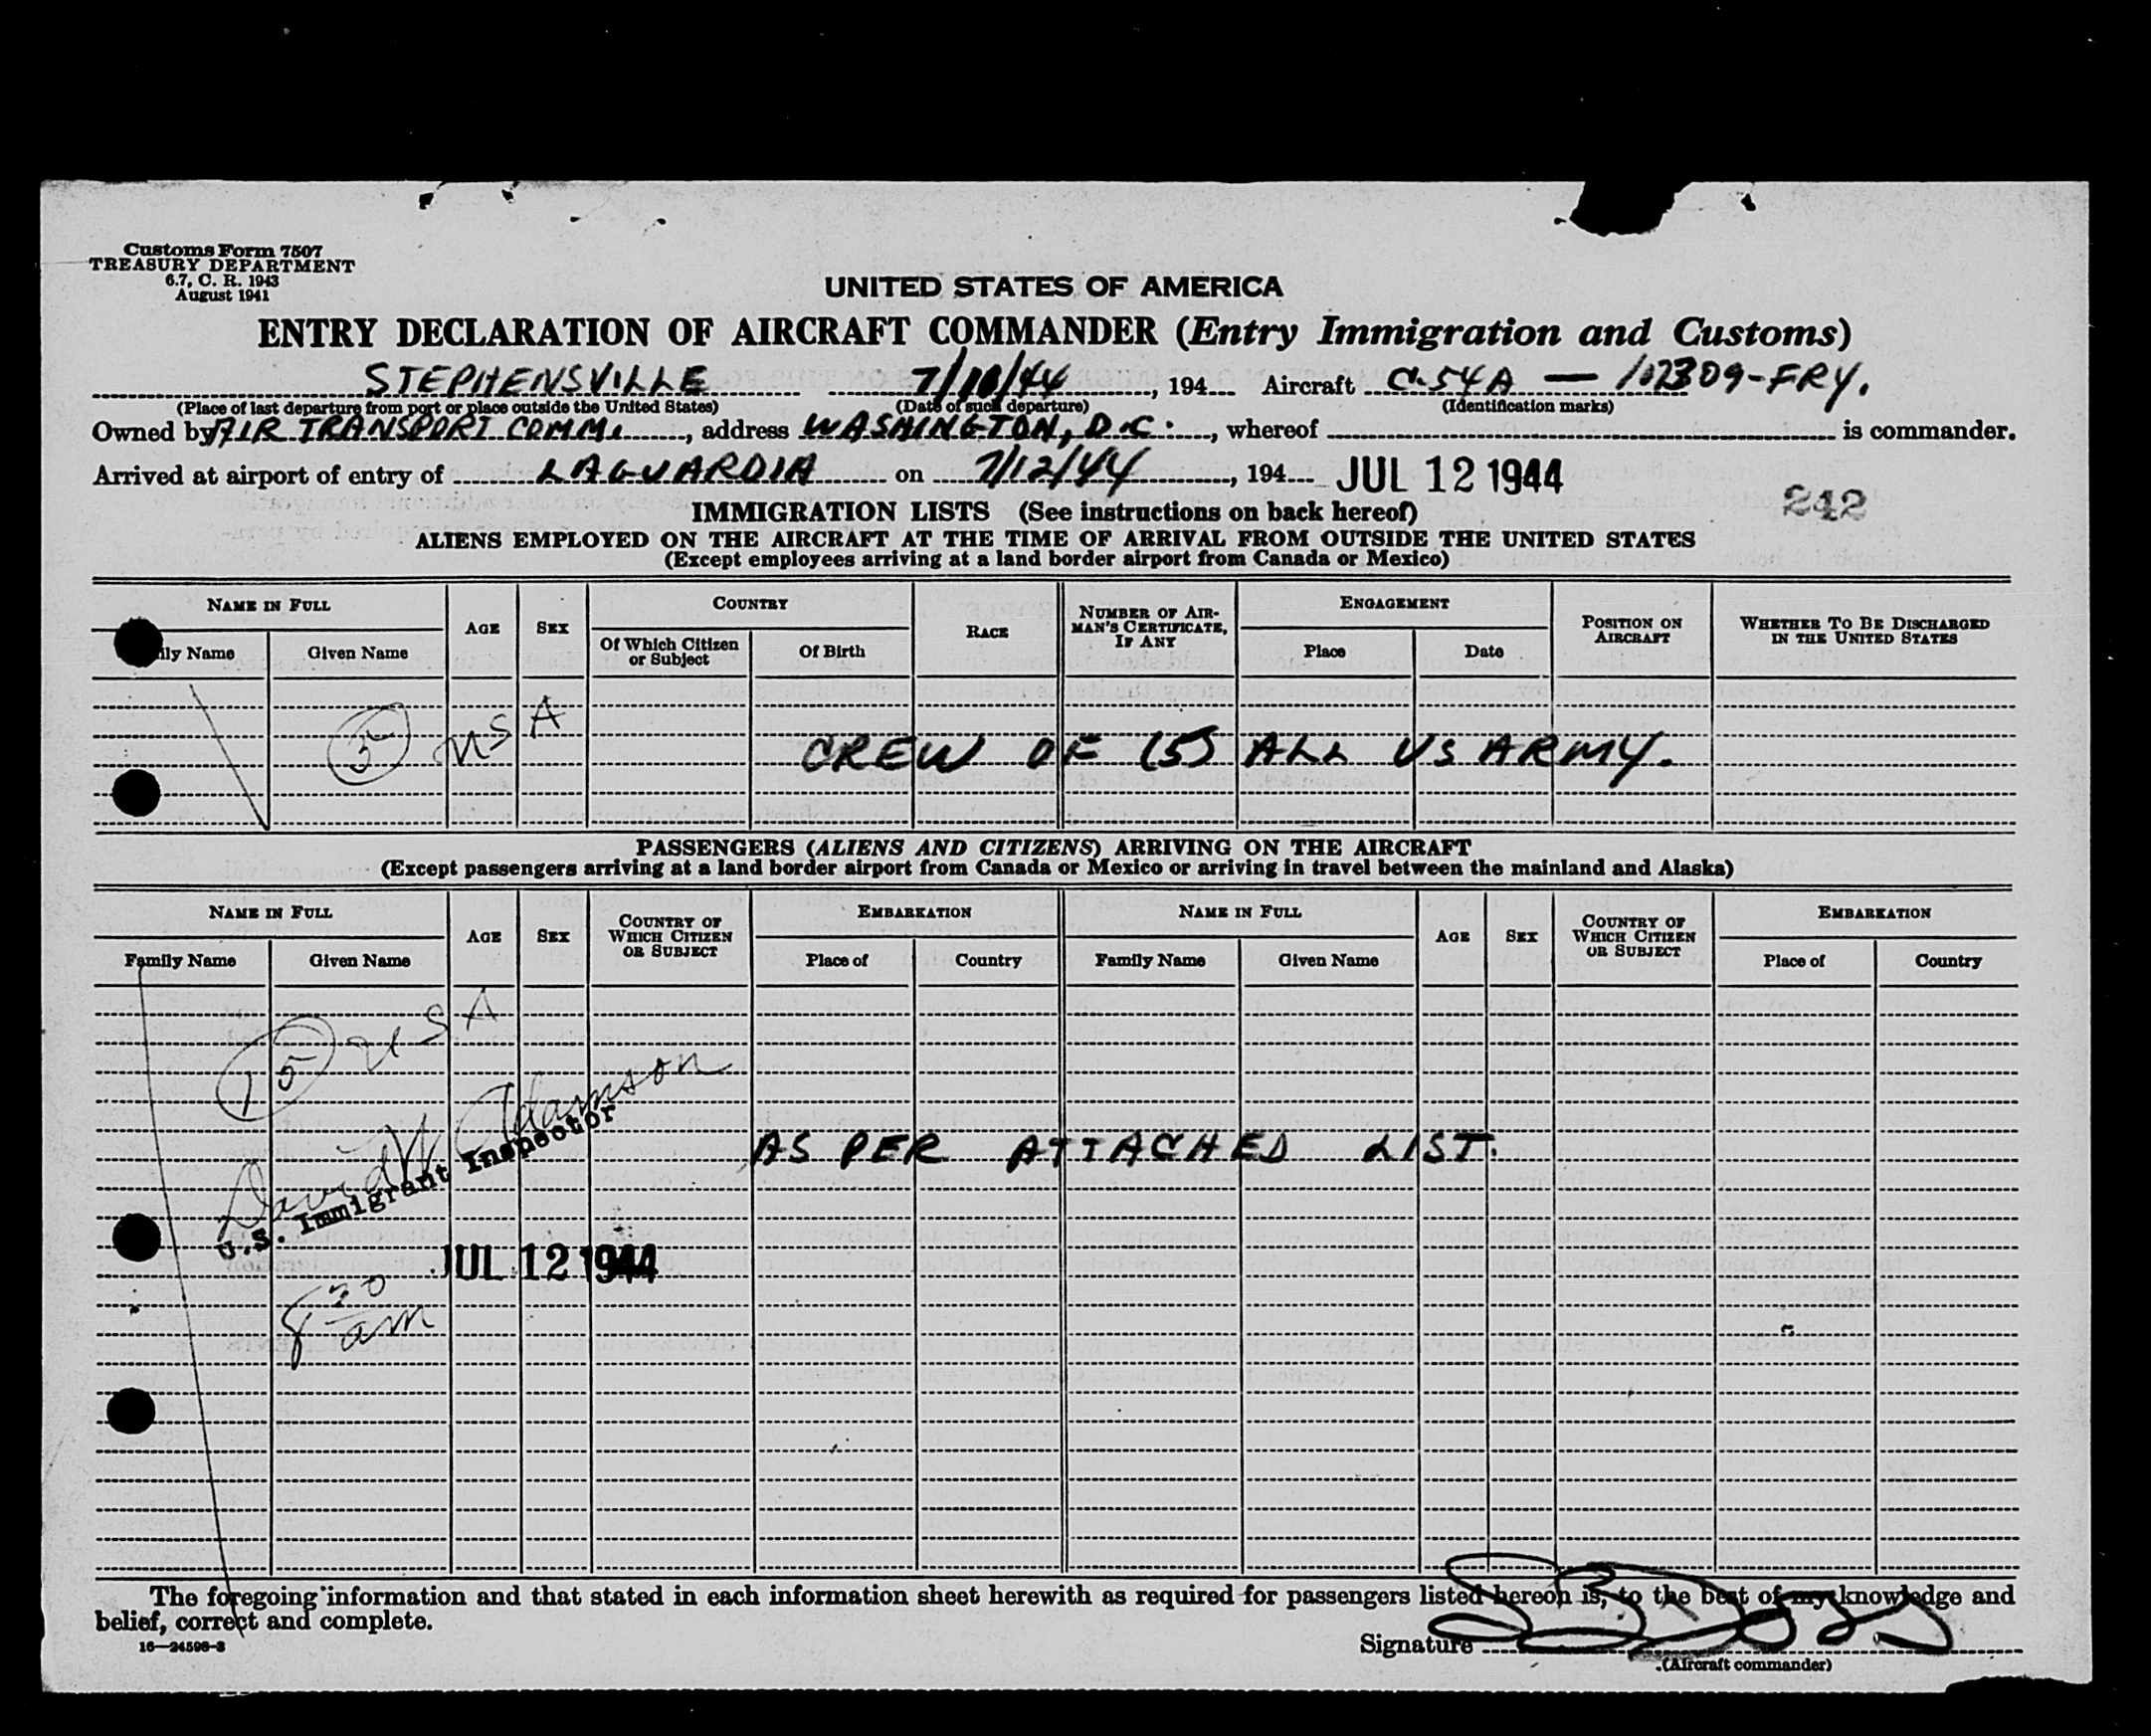 Customs Form 7507
TREASURY DEPARTMENT
6.7, C. R. 1943
August 1941
UNITED STATES OF AMERICA
ENTRY DECLARATION OF AIRCRAFT COMMANDER (Entry Immigration and Customs)
STEPHENSVILLE 7/10/44, 194 Aircraft C-54A — 102309-FRY.
(Place of last departure from port or place outside the United States) (Date of such departure) (Identification marks)
Owned by AIR TRANSPORT COMM., address WASHINGTON, D.C., whereof is commander.
Arrived at airport of entry of LAGUARDIA on 7/12/44, 194 JUL 12 1944
242
IMMIGRATION LISTS (See instructions on back hereof)
ALIENS EMPLOYED ON THE AIRCRAFT AT THE TIME OF ARRIVAL FROM OUTSIDE THE UNITED STATES
(Except employees arriving at a land border airport from Canada or Mexico)
NAME IN FULL AGE SEX COUNTRY RACE NUMBER OF AIRMAN'S CERTIFICATE, IF ANY ENGAGEMENT POSITION ON AIRCRAFT WHETHER TO BE DISCHARGED IN THE UNITED STATES
ily Name Given Name Of Which Citizen or Subject Of Birth Place Date
5 USA
CREW OF (5) ALL US ARMY.
PASSENGERS (ALIENS AND CITIZENS) ARRIVING ON THE AIRCRAFT
(Except passengers arriving at a land border airport from Canada or Mexico or arriving in travel between the mainland and Alaska)
NAME IN FULL AGE SEX COUNTRY OF WHICH CITIZEN OR SUBJECT EMBARKATION NAME IN FULL AGE SEX COUNTRY OF WHICH CITIZEN OR SUBJECT EMBARKATION
Family Name Given Name Place of Country Family Name Given Name Place of Country
15 USA
David W Adamson
U.S. Immigrant Inspector
AS PER ATTACHED LIST.
JUL 12 1944
8 30 am
The foregoing information and that stated in each information sheet herewith as required for passengers listed hereon is, to the best of my knowledge and
belief, correct and complete.
16—24598-3
Signature
(Aircraft commander)